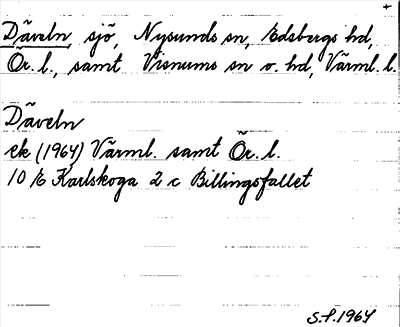 +
Däveln, sjö, Nysunds sn, Edsbergs hd,
Ör. l., samt Visnums sn o. hd, Värml. l.
Däveln
ek (1964) Värml. samt Ör. l.
10 E Karlskoga 2 c Billingsfallet
S.F. 1964